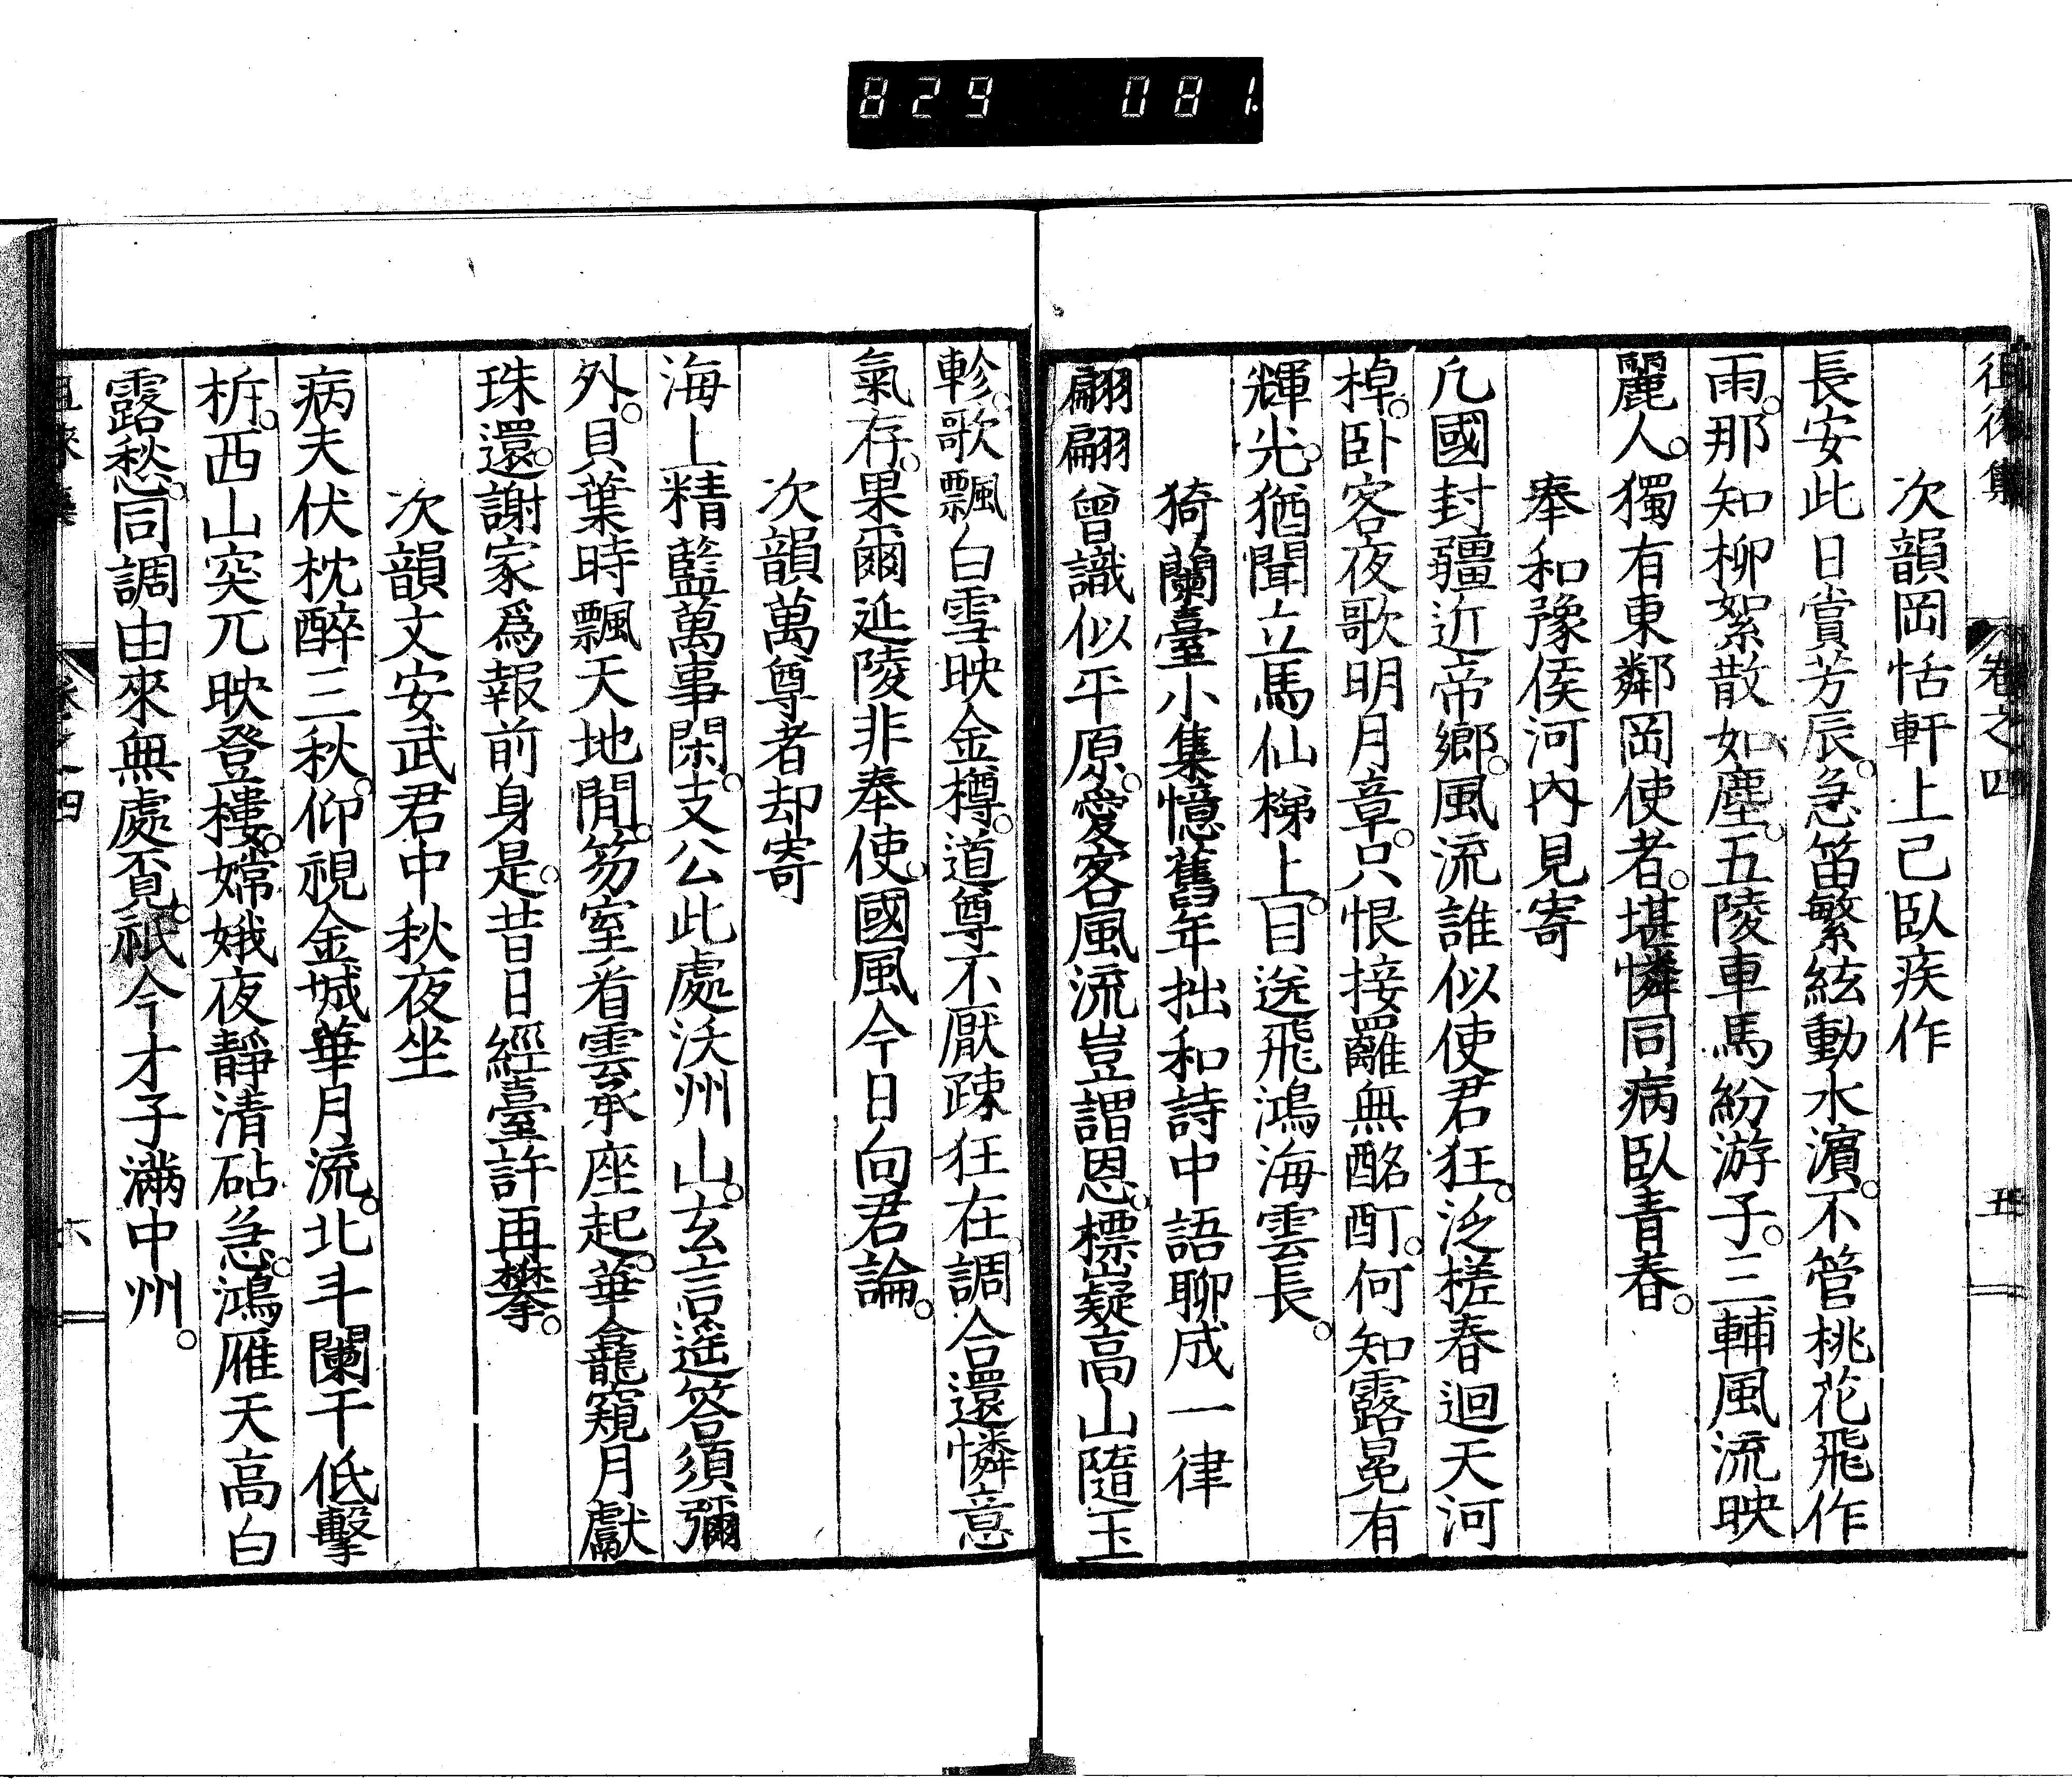 829 081
徂徠集 卷之四 五
次韻岡恬軒上己臥疾作
長安此日賞芳辰。急笛繁絃動水濱。不管桃花飛作
雨。那知柳絮散如塵。五陵車馬紛游子。三輔風流映
麗人。獨有東鄰岡使者。堪憐同病臥青春。
奉和豫侯河內見寄
凢國封疆近帝鄉。風流誰似使君狂。泛槎春迴天河
棹。卧客夜歌明月章。只恨接䍦無酩酊。何知露冕有
輝光。猶聞立馬仙梯上。目送飛鴻海雲長。
猗蘭臺小集憶舊年拙和詩中語聊成一律
翩翩曾識似平原。愛客風流豈謂恩。標嶷高山隨玉
軫。歌飄白雪映金樽。道尊不厭疎狂在。調合還憐意
氣存。果爾延陵非奉使。國風今日向君論。
次韻萬尊者却寄
海上精藍萬事閑。支公此處沃州山。玄言遥答須彌
外。貝葉時飄天地間。笏室看雲承座起。華龕窺月獻
珠還。謝家爲報前身是。昔日經臺許再攀。
次韻文安武君中秋夜坐
病夫伏枕醉三秋。仰視金城華月流。北斗闌干低擊
柝。西山突兀映登樓。嫦娥夜靜清砧急。鴻雁天高白
露愁。同調由來無處覓。祇今才子滿中州。
徂徠集 卷之四 六